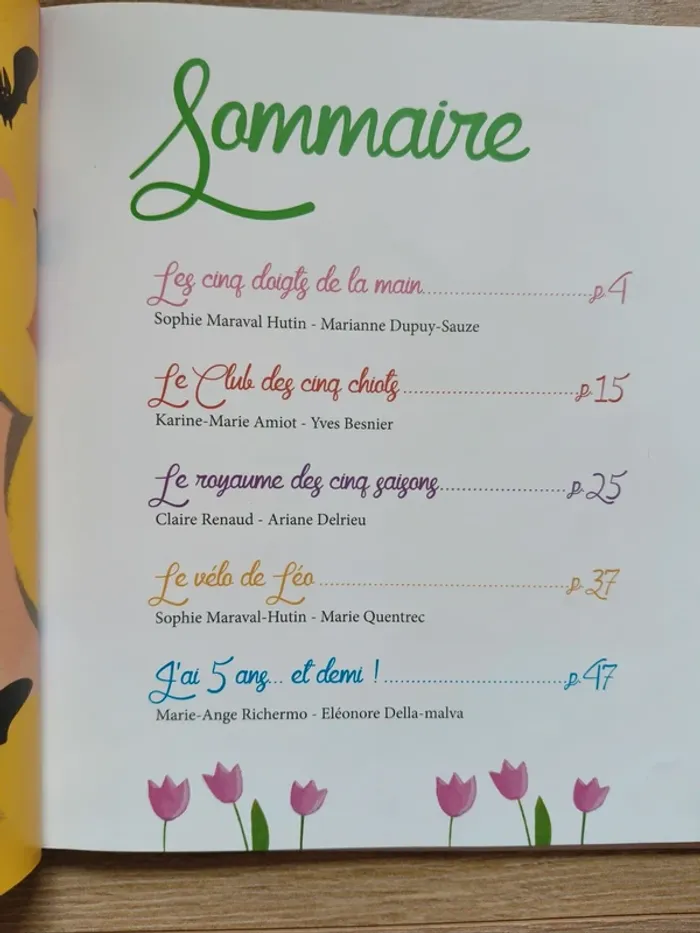 Sommaire
Les cinq doigts de la main..............................p.4
Sophie Maraval Hutin - Marianne Dupuy-Sauze
Le Club des cinq chiots..............................p.15
Karine-Marie Amiot - Yves Besnier
Le royaume des cinq saisons......................p.25
Claire Renaud - Ariane Delrieu
Le vélo de Léo............................................p.37
Sophie Maraval-Hutin - Marie Quentrec
J'ai 5 ans... et demi !................................p.47
Marie-Ange Richermo - Eléonore Della-malva